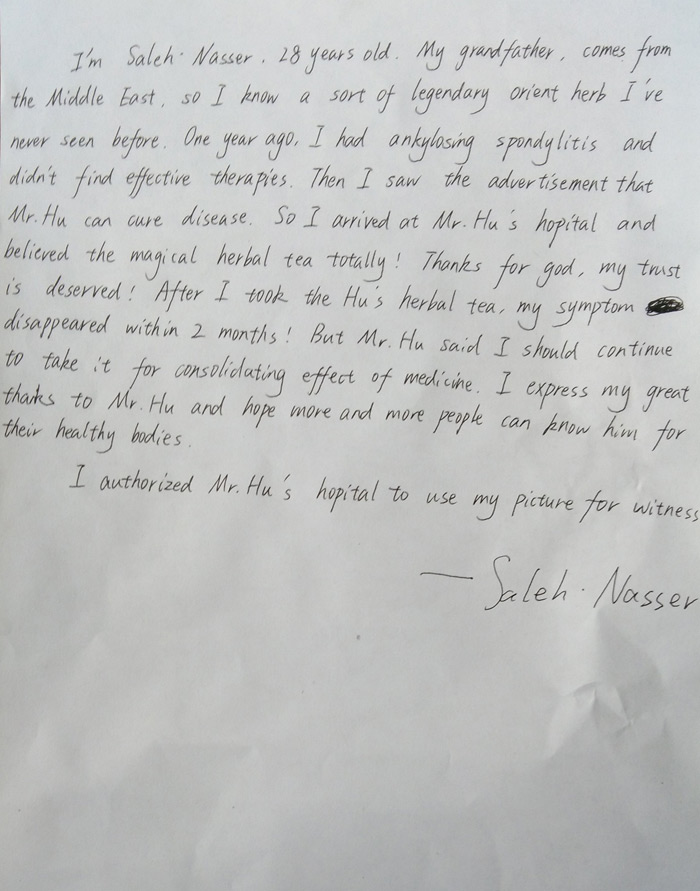 I'm Saleh·Nasser, 28 years old. My grandfather, comes from
the Middle East, so I know a sort of legendary orient herb I've
never seen before. One year ago, I had ankylosing spondylitis and
didn't find effective therapies. Then I saw the advertisement that
Mr.Hu can cure disease. So I arrived at Mr.Hu's hopital and
believed the magical herbal tea totally! Thanks for god, my trust
is deserved! After I took the Hu's herbal tea, my symptom
disappeared within 2 months! But Mr.Hu said I should continue
to take it for consolidating effect of medicine. I express my great
thanks to Mr.Hu and hope more and more people can know him for
their healthy bodies.
I authorized Mr.Hu's hopital to use my picture for witness
— Saleh·Nasser